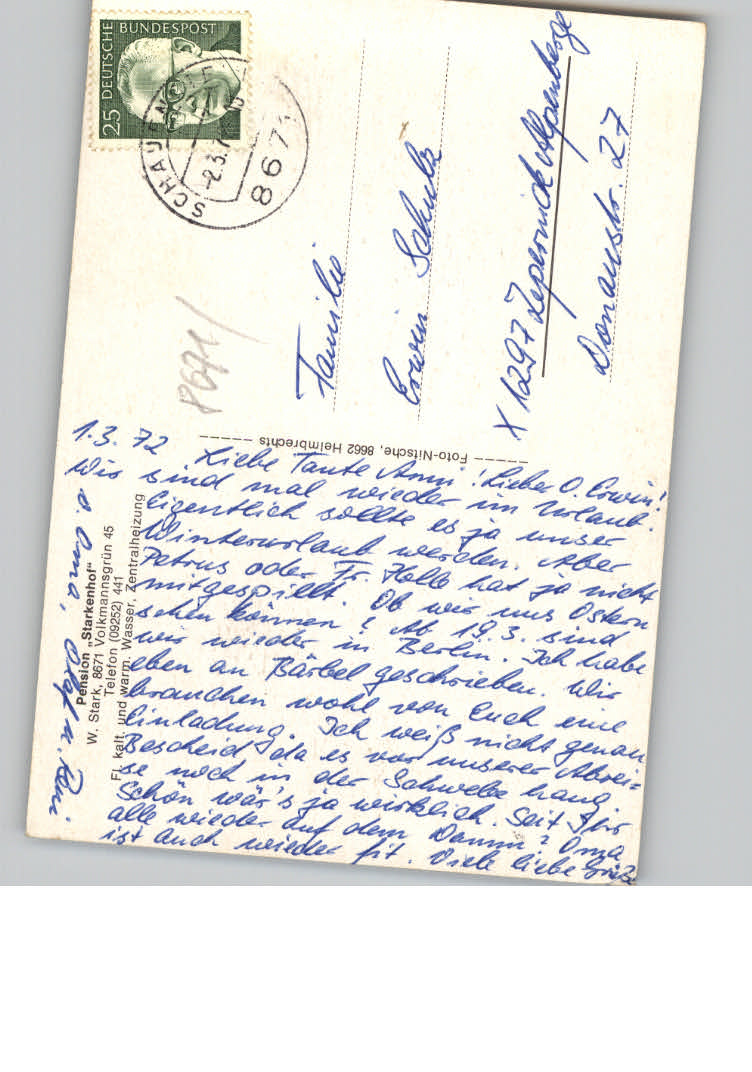 25 DEUTSCHE BUNDESPOST
8671
-2.3.7
8671
Familie
Erwin Schulz
X 1297 Zepernick Alpenberge
Donaustr. 27
Foto-Nitsche, 8662 Helmbrechts
Pension „Starkenhof"
W. Stark, 8671 Volkmannsgrün 45
Telefon (09252) 441
Fl. kalt. und warm. Wasser, Zentralheizung
1.3.72
Liebe Tante Anni! Lieber O. Erwin!
Wir sind mal wieder im Urlaub.
Eigentlich sollte es ja unser
Winterurlaub werden. Aber
Petrus oder Fr. Holle hat ja nicht
mitgespielt. Ob wir uns Ostern
sehen können? Ab 19.3. sind
wir wieder in Berlin. Ich habe
eben an Bärbel geschrieben. Wir
brauchen wohl von Euch eine
Einladung. Ich weiß nicht genau
Bescheid da es vor unserer Abrei=
se noch in der Schwebe hang.
Schön wär's ja wirklich. Seit Ihr
alle wieder auf dem Damm? Oma
ist auch wieder fit. Viele liebe Grüße
v. Oma, Olaf u.